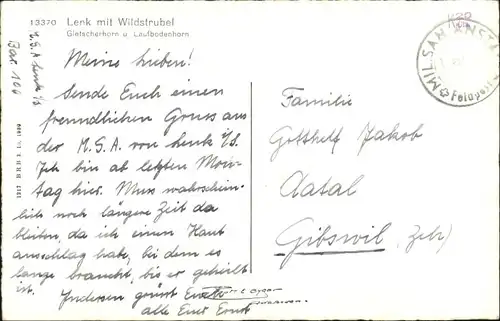 13370 Lenk mit Wildstrubel
Gletscherhorn u. Laufbodenhorn
Meine Lieben!
Sende Euch einen
freundlichen Gruss aus
der M.S.A. von Lenk i/S.
Ich bin ab letzten Mon-
tag hier. Muss wahrschein-
lich noch längere Zeit da
bleiben, da ich einen Haut
anschlag habe, bei dem es
lange braucht, bis er geheilt
ist. Indessen grüsst Euch
alle Euer Ernst
M.S.A. Lenk i/S
Bar. 100
MIL. SAN. ANST
Feldpost
Familie
Gotthelf Jakob
Aatal
Gibswil (Zch)